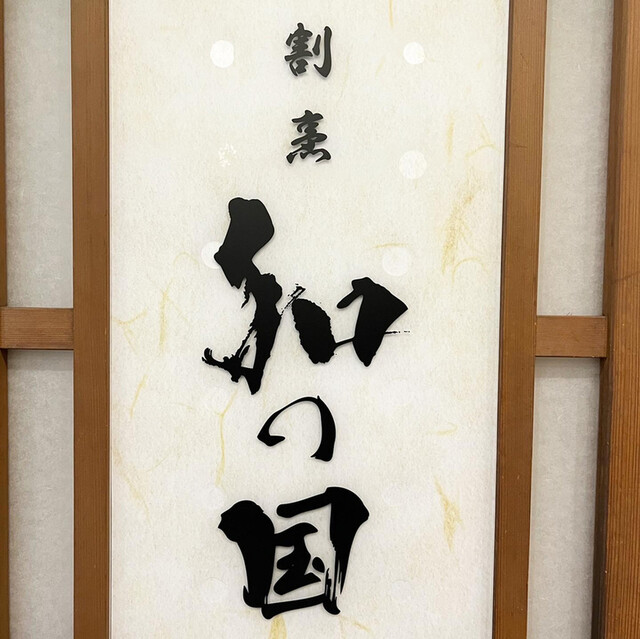 割烹
和の国